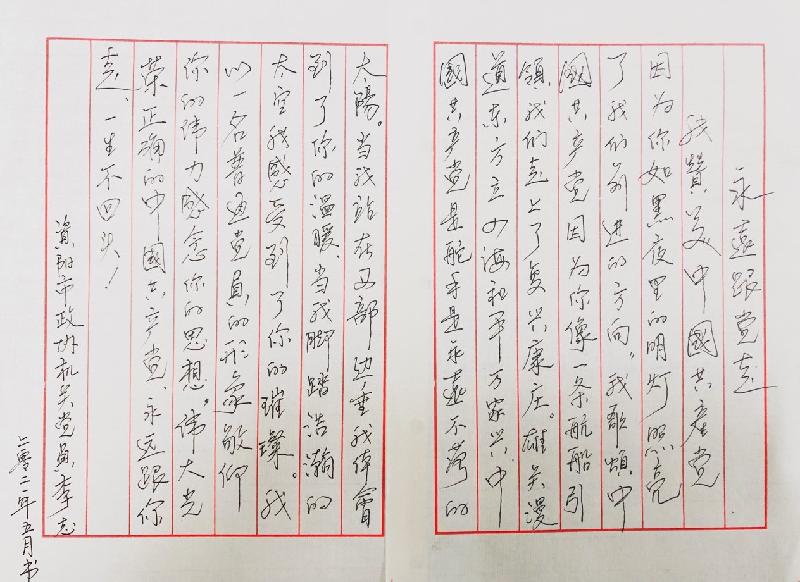 永远跟党走
我赞美中國共產党
因为你如黑夜里的明灯照亮
了我们前进的方向。我歌颂中
國共产党因为你像一条航船引
领我们走上了复兴康庄。雄关漫
道东方立四海和平万家兴中
國共产党是舵手是永远不落的
太陽。当我站在西部边陲我体会
到了你的温暖、当我脚踏浩瀚的
太空我感受到了你的璀璨。我
以一名普通党员的形象敬仰
你的伟力感念你的思想。伟大光
荣正确的中國共产党、永远跟你
走、一生不回头！
資阳市政协机关党员李志
二零二一年五月书